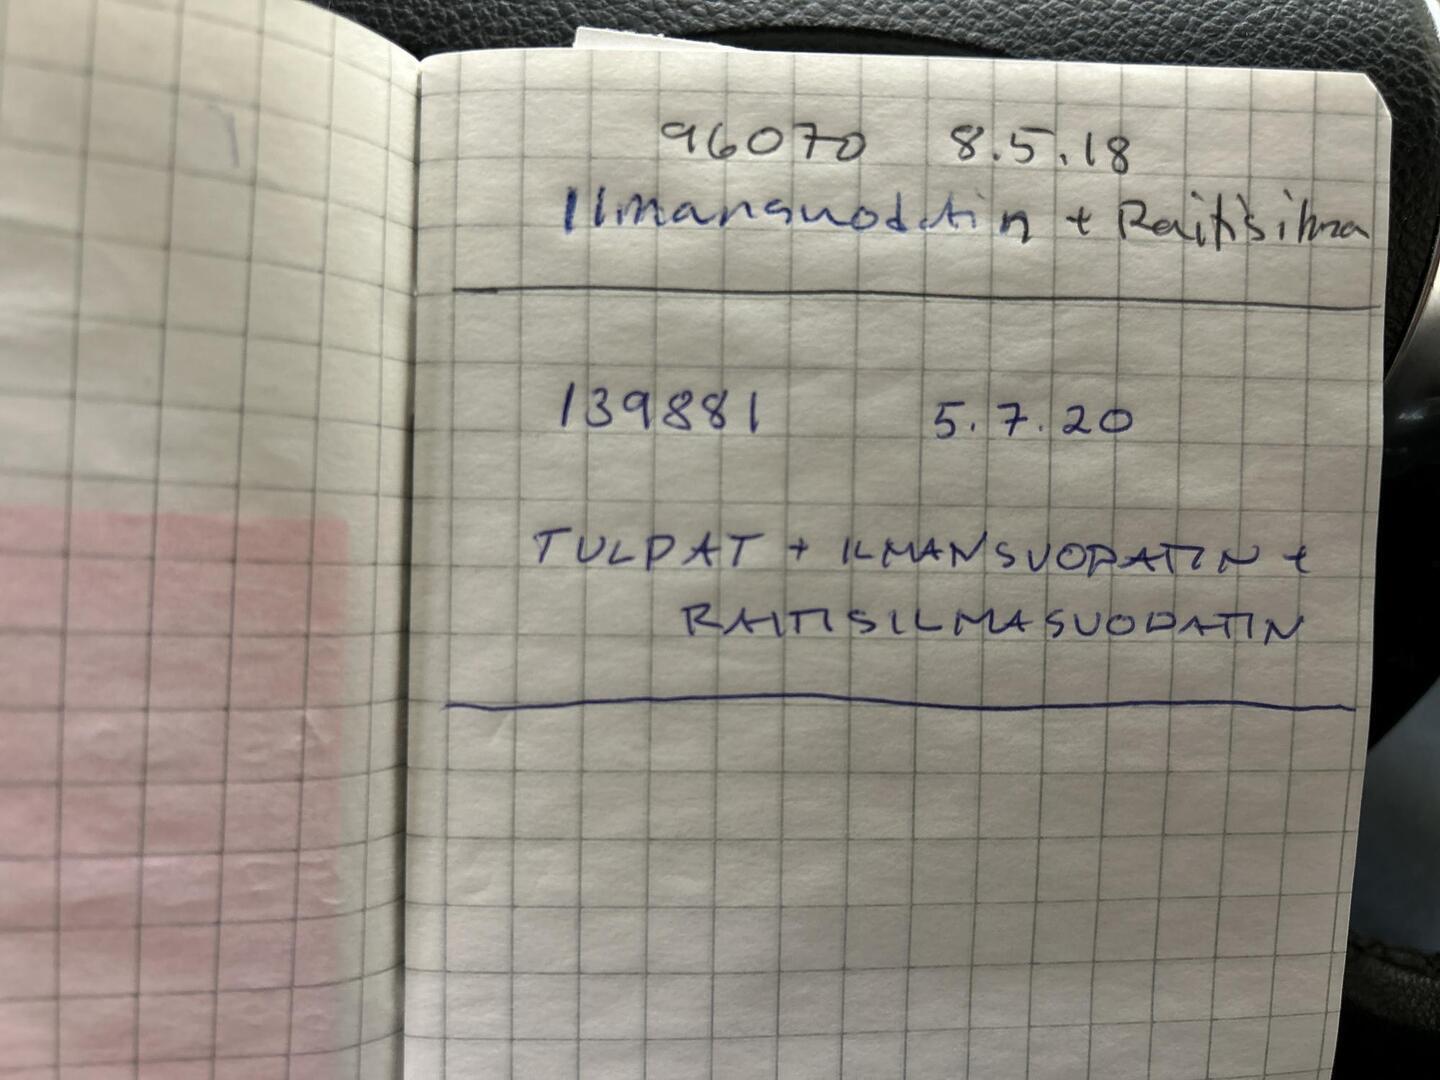 96070 8.5.18
Ilmansuodatin + Raitisilma
139881 5.7.20
TULPAT + ILMANSUODATIN +
RAITISILMASUODATIN